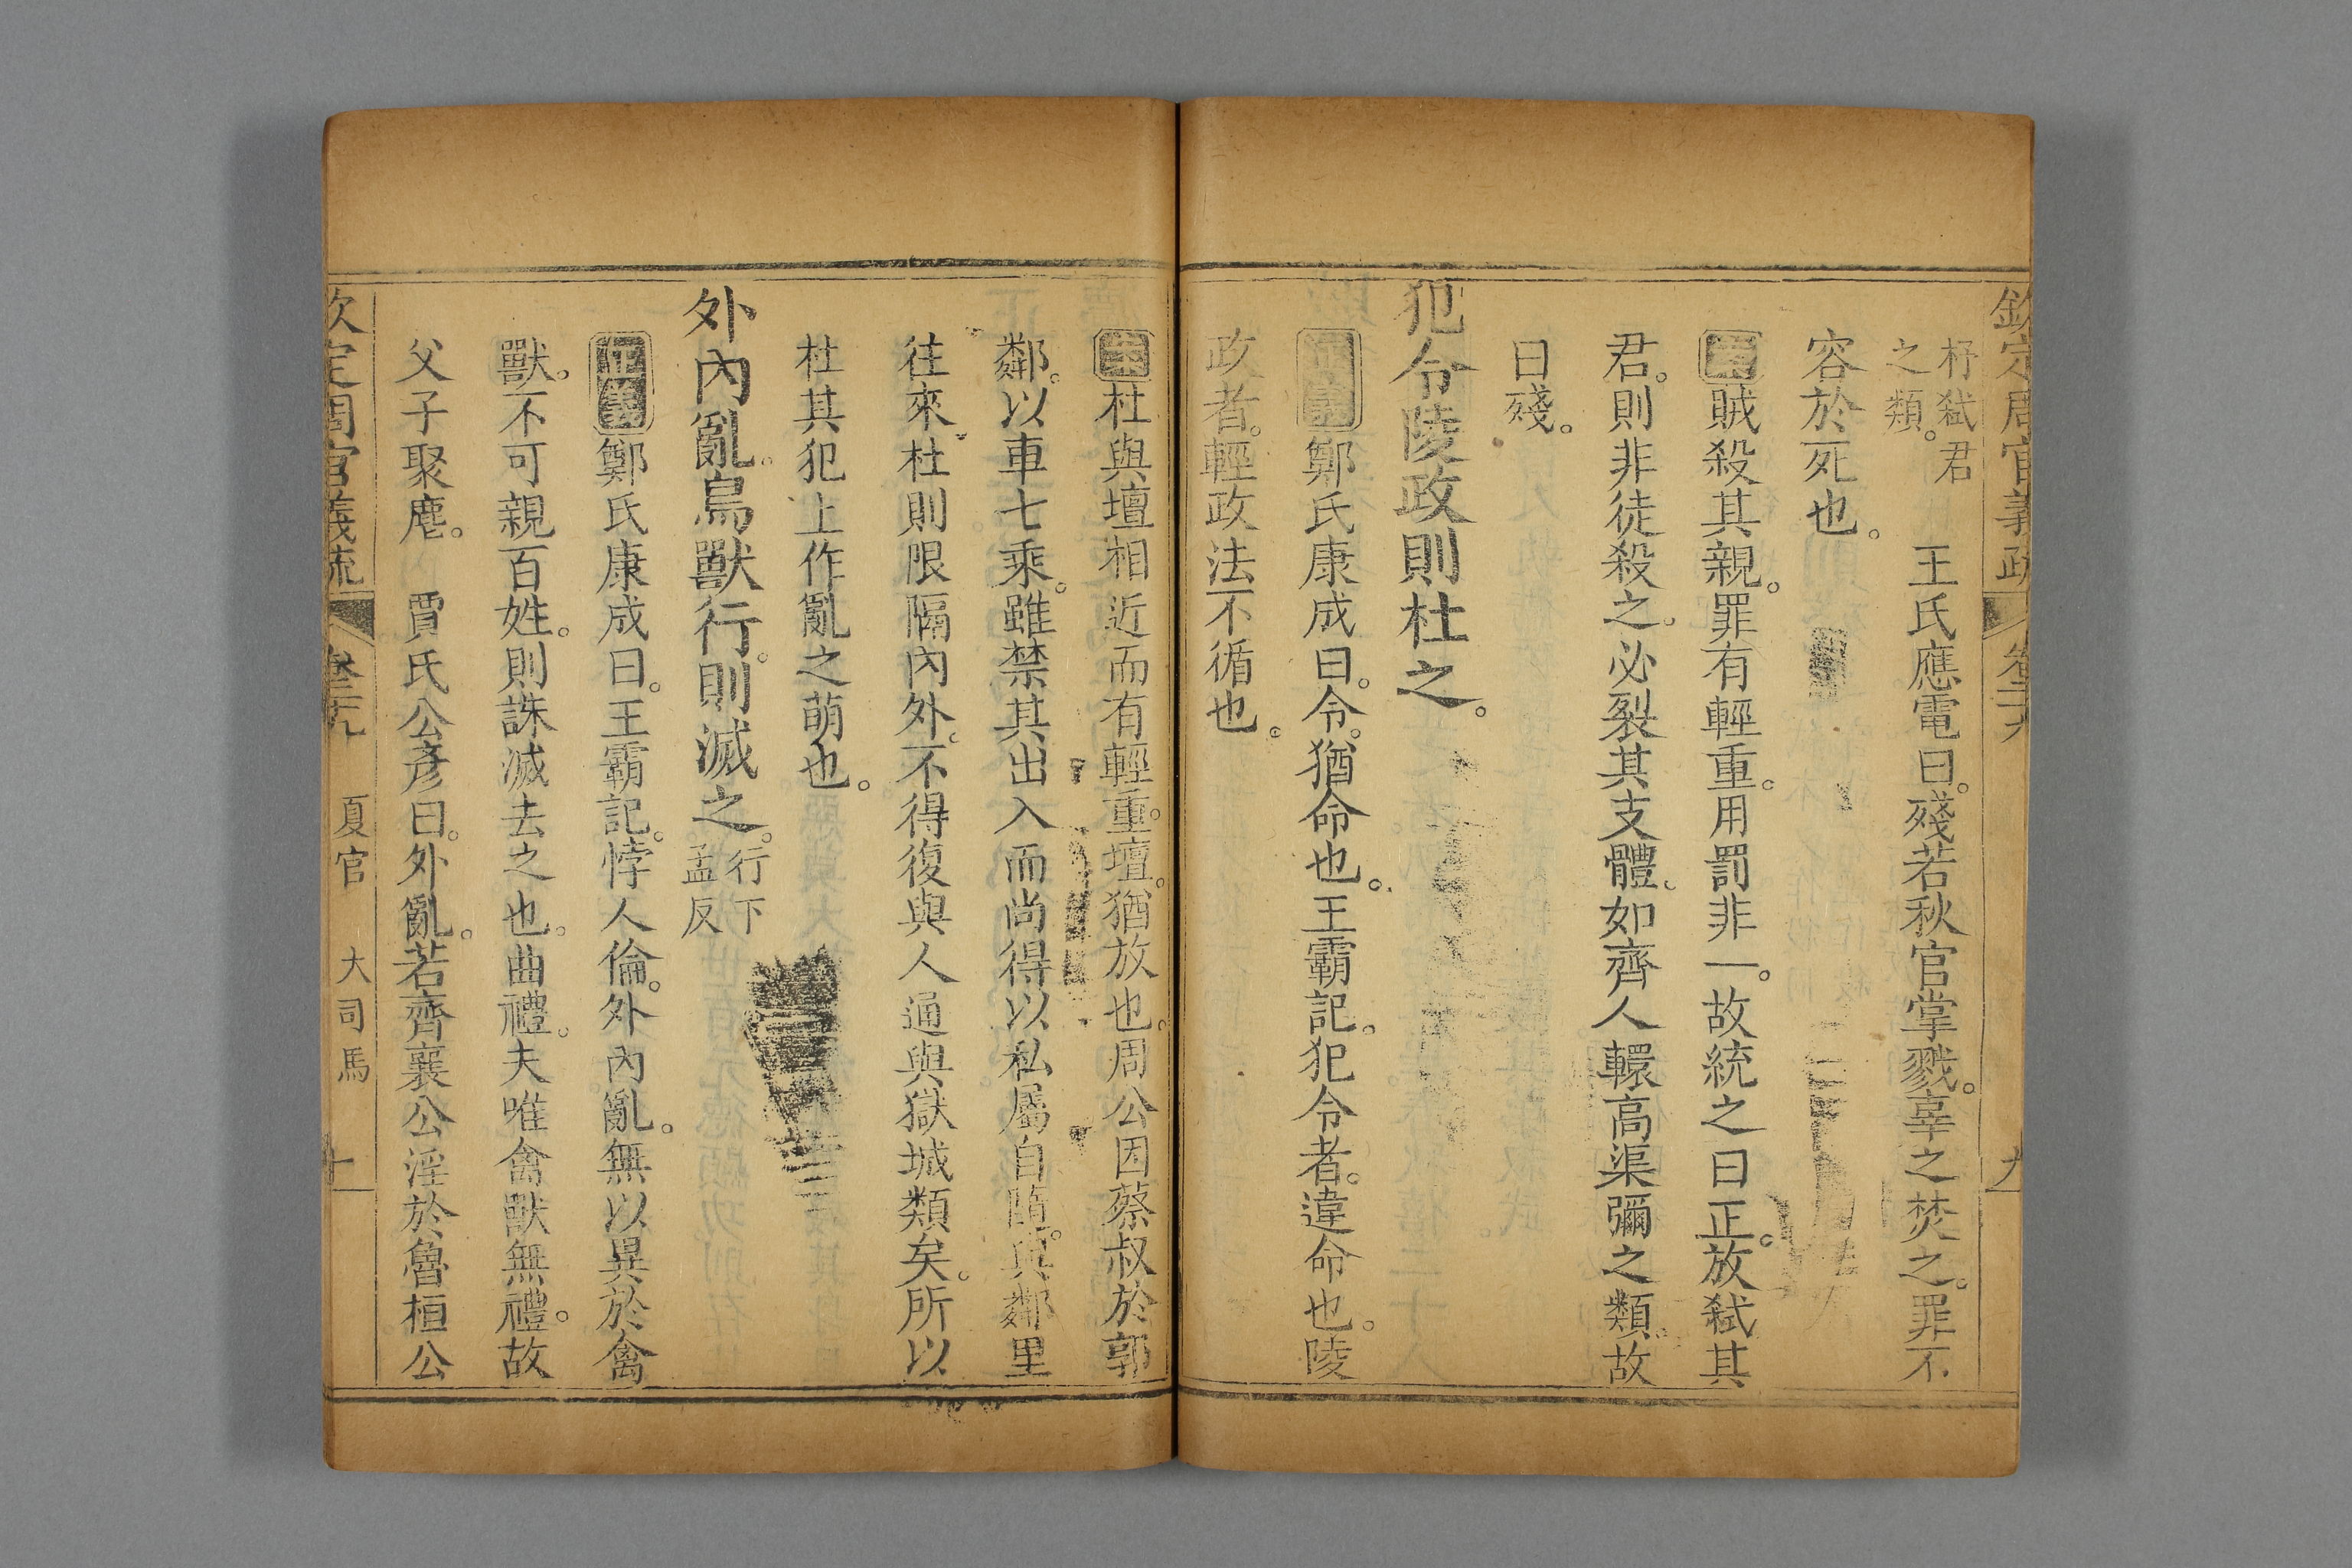 欽定周官義疏 卷二十九 九
杼弑君
之類。
王氏應電曰。殘若秋官掌戮。辜之焚之。罪不
容於死也。
案賊殺其親。罪有輕重。用罰非一。故統之曰正。放弑其
君。則非徒殺之。必裂其支體。如齊人轘高渠彌之類。故
曰殘。
犯令陵政則杜之。
正義鄭氏康成曰。令。猶命也。王霸記。犯令者。違命也。陵
政者。輕政法不循也。
案杜與壇相近而有輕重。壇。猶放也。周公因蔡叔於郭
鄰。以車七乘。雖禁其出入而尚得以私屬自隨。與鄰里
往來。杜則限隔內外。不得復與人通與獄城類矣。所以
杜其犯上作亂之萌也。
外內亂。鳥獸行。則滅之。
行下
孟反
正義鄭氏康成曰。王霸記。悖人倫。外內亂。無以異於禽
獸。不可親百姓。則誅滅去之也。曲禮。夫唯禽獸無禮。故
父子聚麀。 賈氏公彥曰。外亂。若齊襄公淫於魯桓公
欽定周官義疏 卷二十九 夏官 大司馬 十